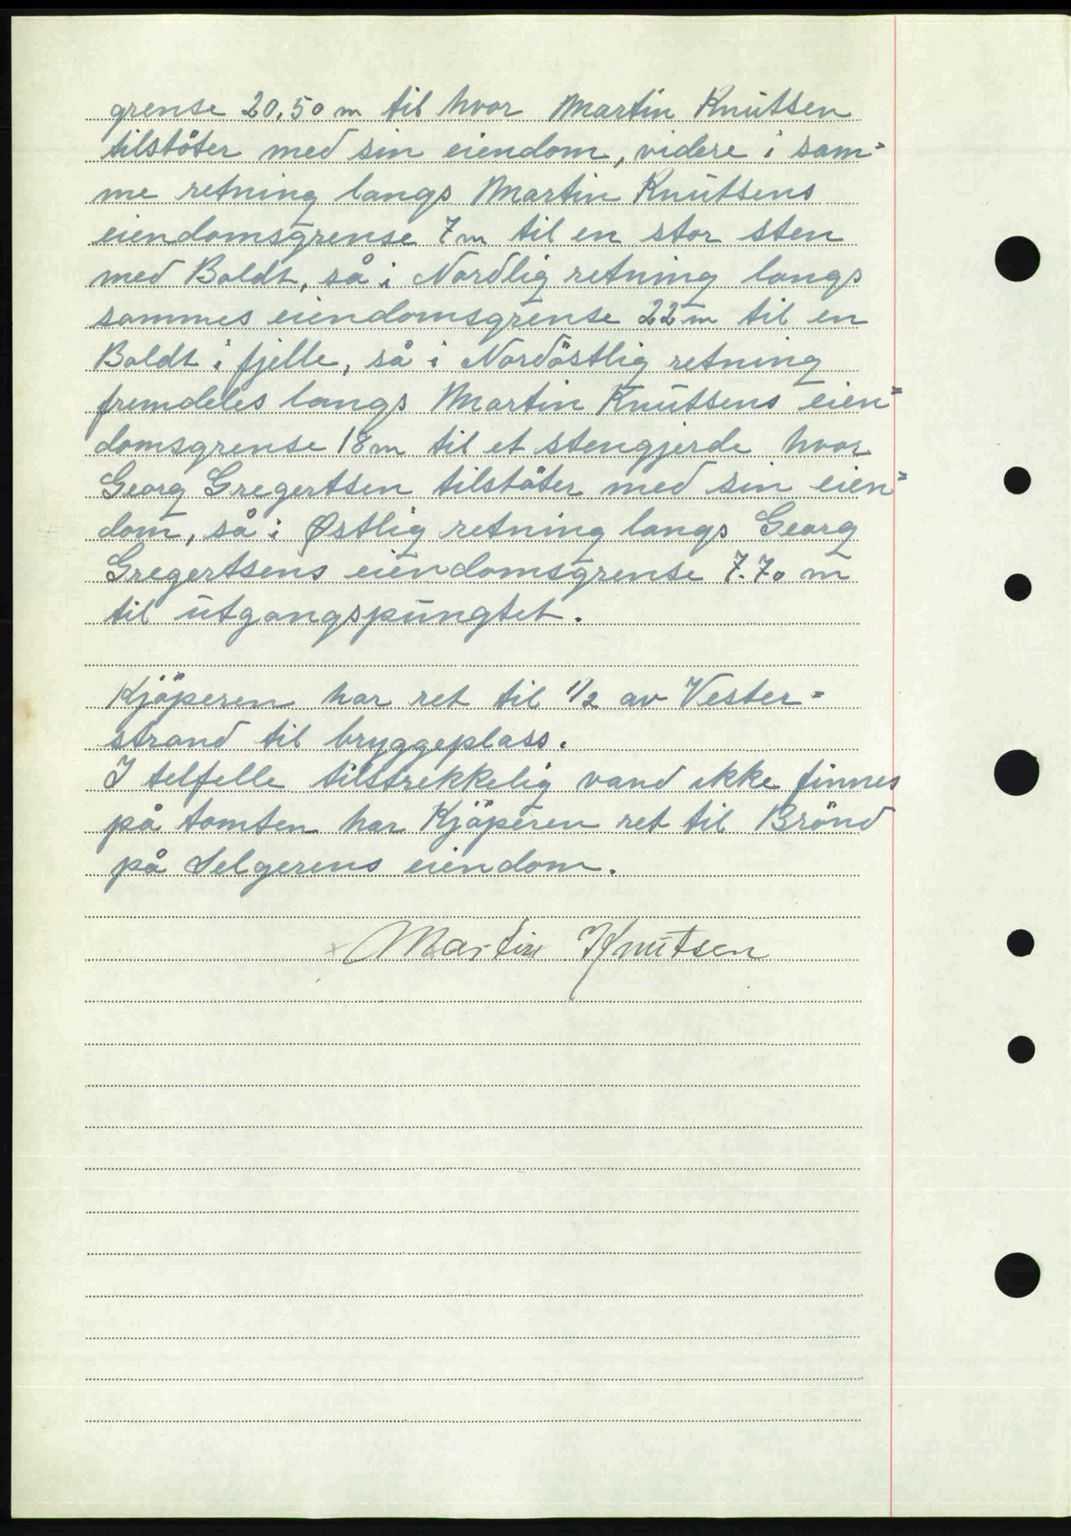 grense 20,50 m til hvor Martin Knutsen
tilstöter med sin eiendom, videre i sam=
me retning langs Martin Knutsens
eiendomsgrense 7 m til en stor sten
med Boldt, så i Nordlig retning langs
sammes eiendomsgrense 22 m til en
Boldt i fjelle, så i Nordöstlig retning
fremdeles langs Martin Knutsens eien=
domsgrense 18 m til et stengjerde hvor
Georg Gregertsen tilstöter med sin eien=
dom, så i Østlig retning langs Georg
Gregertsens eiendomsgrense 7.70 m
til utgangspungtet.
Kjöperen har ret til 1/2 av Vester=
strand til bryggeplass.
I telfelle tilstrekkelig vand ikke finnes
på tomten har Kjöperen ret til Brönd
på Selgerens eiendom.
x Martin Knutsen